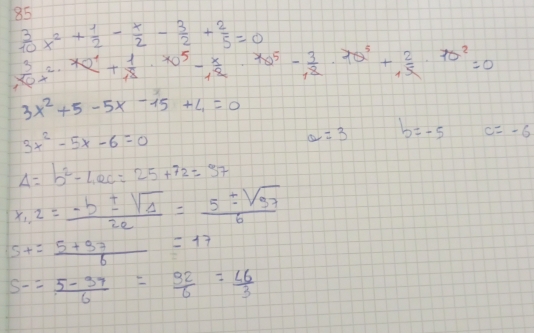 85
3/10 x² + 1/2 - x/2 - 3/2 + 2/5 = 0
3/10 x² · 10¹ + 1/2 · 10⁵ - x/2 · 10⁵ - 3/2 · 10⁵ + 2/5 · 10² = 0
3x² + 5 - 5x - 15 + 4 = 0
3x² - 5x - 6 = 0 a = 3 b = -5 c = -6
Δ = b² - 4ac = 25 + 72 = 97
x₁,2 = -b ± √Δ / 2a = 5 ± √97 / 6
S+ = 5 + 97 / 6 = 17
S- = 5 - 97 / 6 = 92/6 = 46/3